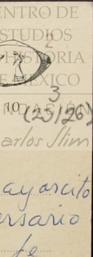 ENTRO DE
ESTUDIOS
HISTORIA
E MEXICO
2
3
10
(25/26)
arlos Slim
ayorcito
ersario
de